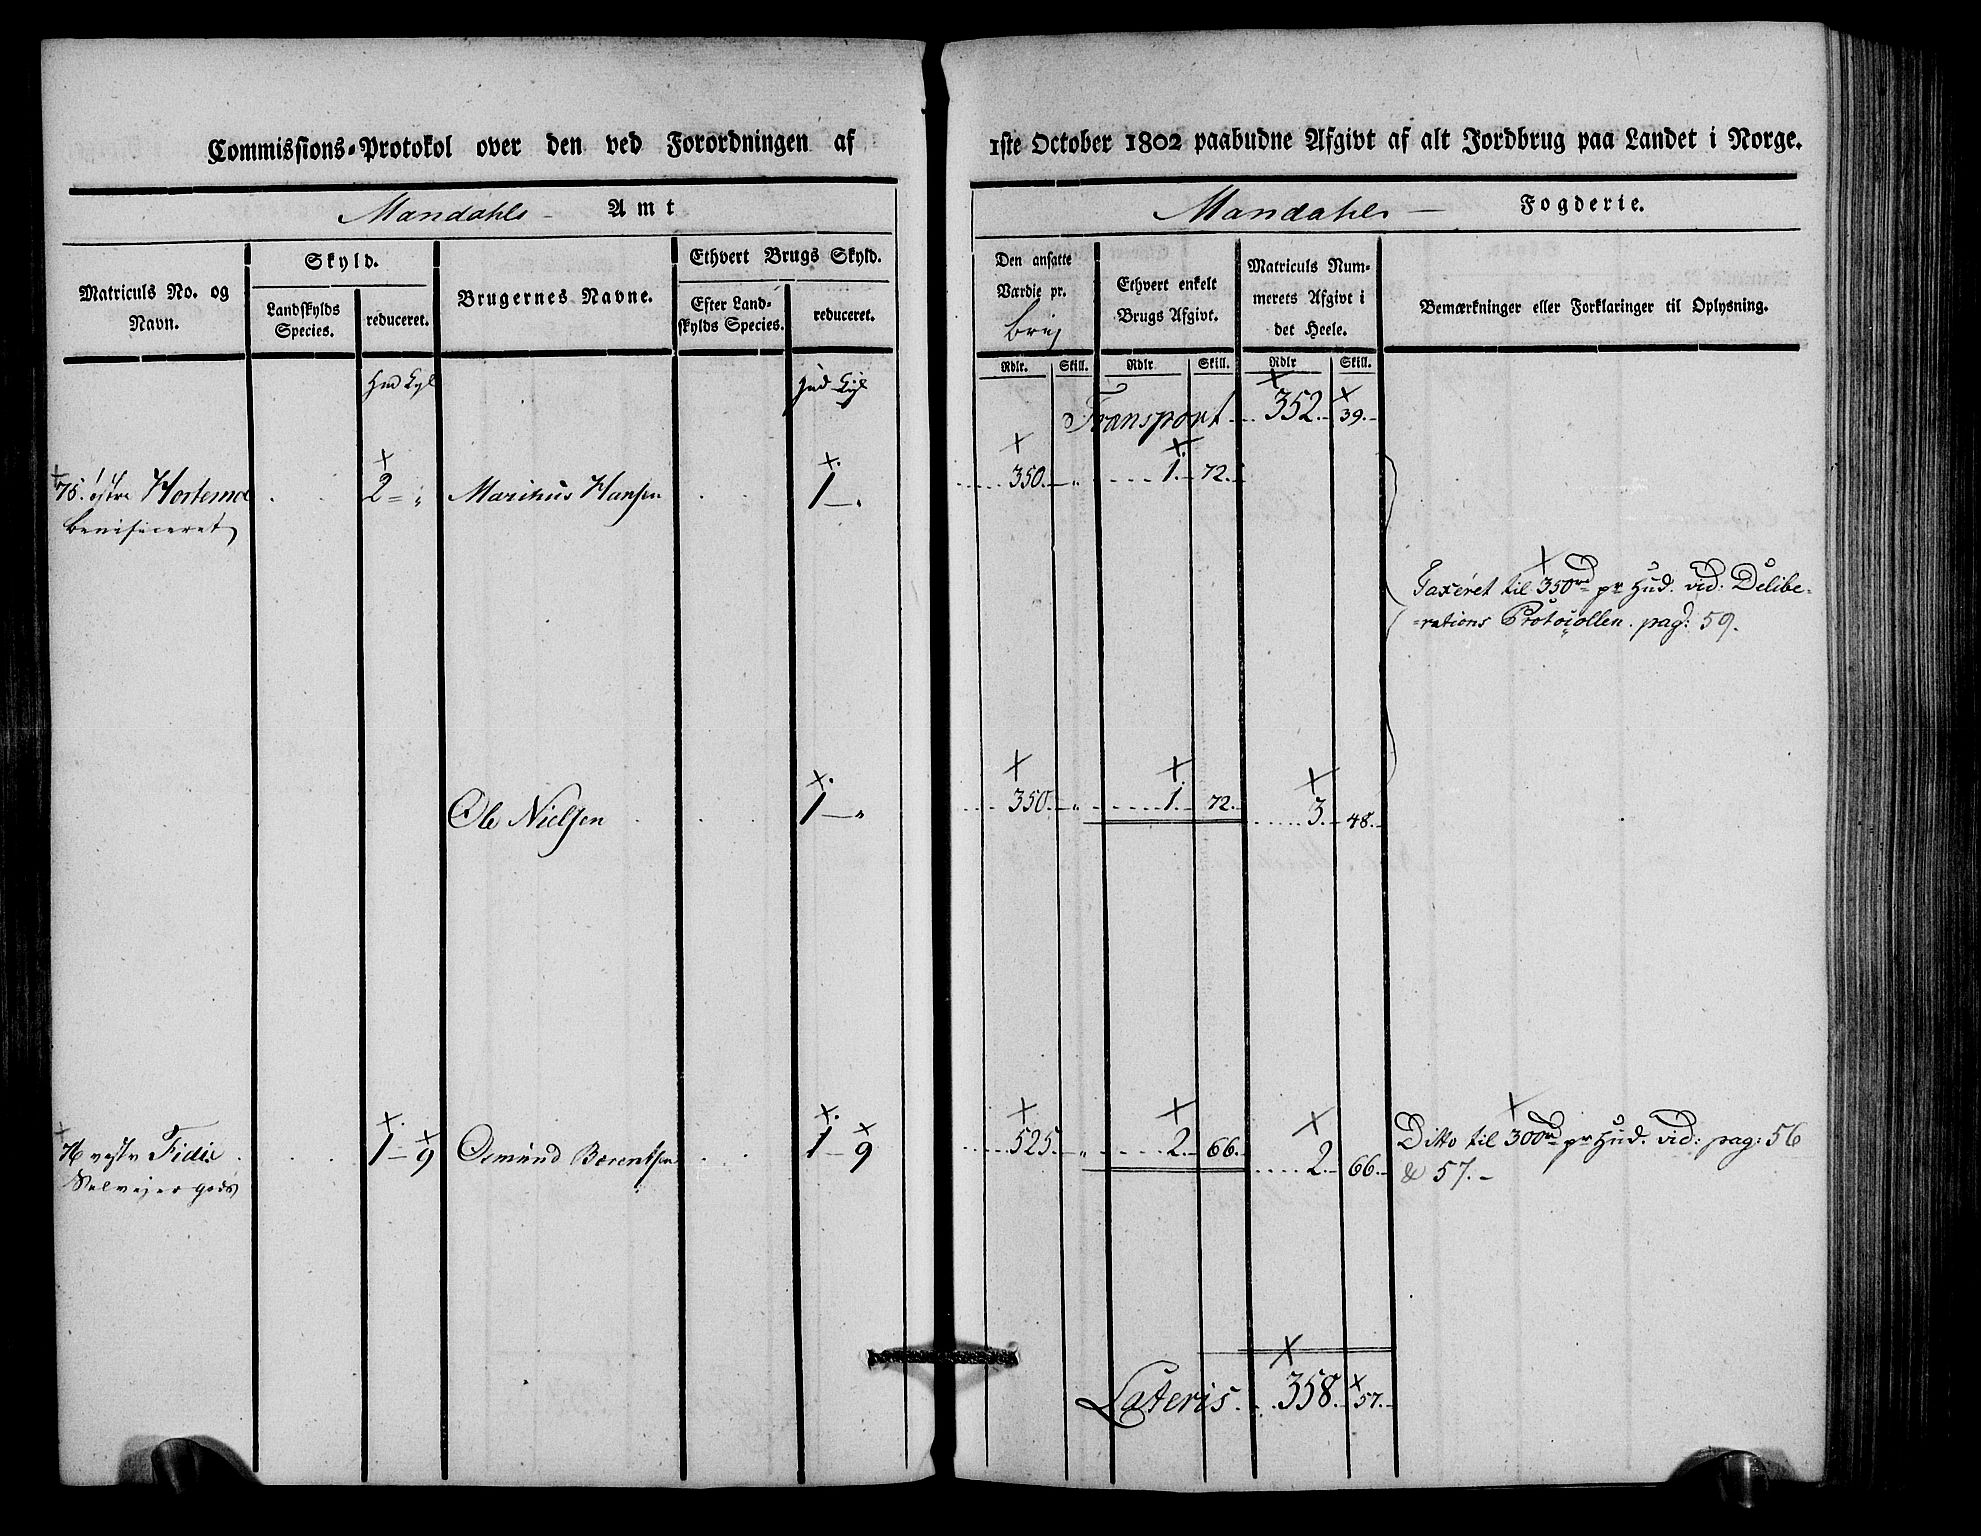 Commissions-Protokol over den ved Forordningen af
1ste October 1802 paabudne Afgivt af alt Jordbrug paa Landet i Norge.
Mandahls - Amt
Mandahls - Fogderie.
Matriculs No. og Navn.
Skyld.
Landskylds Species.
reduceret.
Brugernes Navne.
Ethvert Brugs Skyld.
Efter Landskylds Species.
reduceret.
Den ansatte Værdie pr.
Ethvert enkelt Brugs Afgivt.
Matriculs Nummerets Afgivt i det Heele.
Bemærkninger eller Forklaringer til Oplysning.
Rdlr. Skill. Rdlr Skill. Rdlr Skill.
Transport 352. 39.
75. østre Hortemoe 2 = " Marikus Hansen 1 - " 350. - " 1. 72.
benificeret
Taxeret til 350rd pr Hud. vid: Delibe-
-rations Protocollen. pag: 59.
Ole Nielsen 1 - " 350. - " 1. 72. 3. 48.
76 vestr Fidie 1 - 9 Osmund Barentsen 1 - 9 525. - " 2. 66. 2. 66. Ditto til 300rd pr Hud. vid: pag: 56
Selveier gods & 57. -
Lateris. 358. 57.